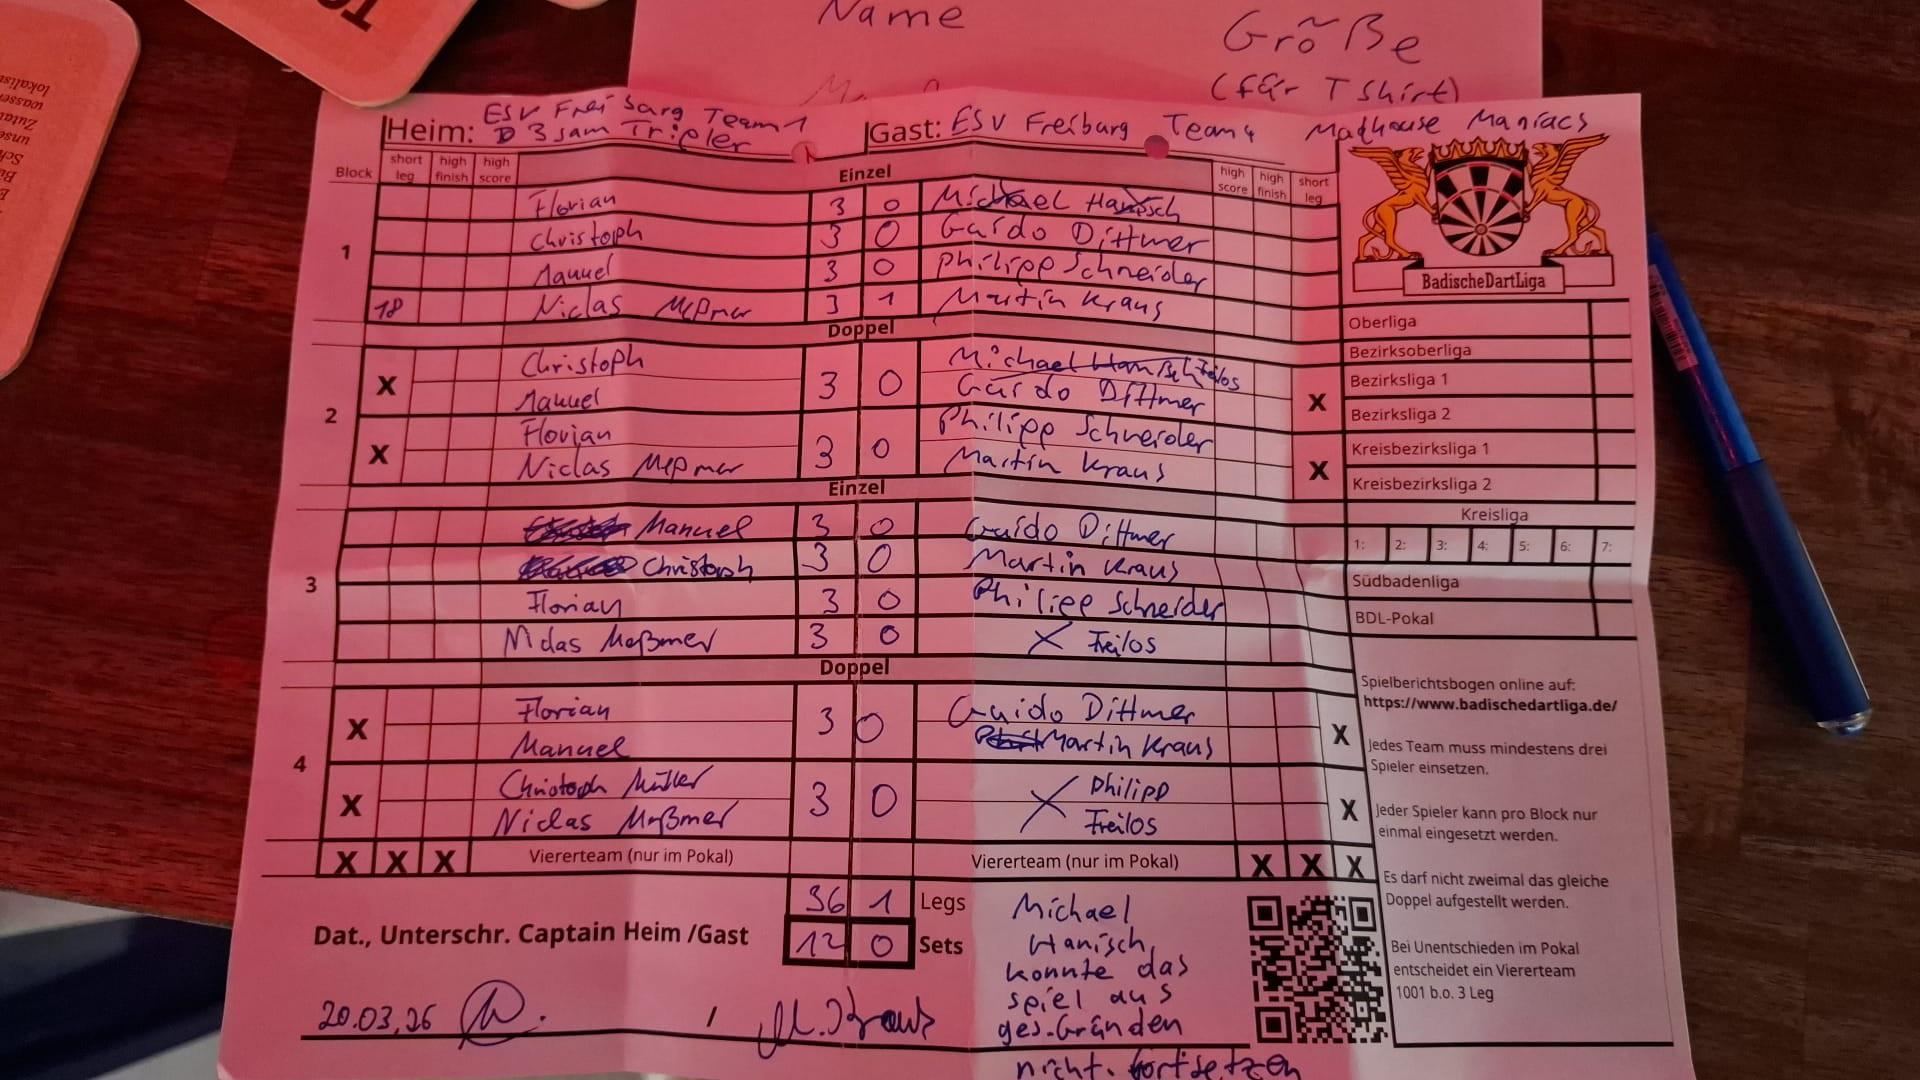 Name
Größe
(für T Shirt)
Heim: ESV Freiburg Team 1
D3sam Tripler
Gast: ESV Freiburg Team 4 Madhouse Maniacs
Block short leg high finish high score Einzel high score high finish short leg
1
Florian 3 0 Michael Hanisch
Christoph 3 0 Guido Dittmer
Manuel 3 0 Philipp Schneider
18 Niclas Meßmer 3 1 Martin Kraus
Doppel
2
X Christoph 3 0 Michael Freilos X
Manuel Guido Dittmer
X Florian 3 0 Philipp Schneider X
Niclas Meßmer Martin Kraus
Einzel
3
Manuel 3 0 Guido Dittmer
Christoph 3 0 Martin Kraus
Florian 3 0 Philipp Schneider
Niclas Meßmer 3 0 X Freilos
Doppel
4
X Florian 3 0 Guido Dittmer X
Manuel Martin Kraus
X Christoph Müller 3 0 X Philipp X
Niclas Meßmer Freilos
X X X Viererteam (nur im Pokal) Viererteam (nur im Pokal) X X X
36 1 Legs
12 0 Sets
Dat., Unterschr. Captain Heim /Gast
20.03.26 / M. Kraus
Michael
Hanisch
konnte das
spiel aus
ges. Gründen
nicht fortsetzen
BadischeDartLiga
Oberliga
Bezirksoberliga
Bezirksliga 1
Bezirksliga 2
Kreisbezirksliga 1
Kreisbezirksliga 2
Kreisliga
1: 2: 3: 4: 5: 6: 7:
Südbadenliga
BDL-Pokal
Spielberichtsbogen online auf:
https://www.badischedartliga.de/
Jedes Team muss mindestens drei
Spieler einsetzen.
Jeder Spieler kann pro Block nur
einmal eingesetzt werden.
Es darf nicht zweimal das gleiche
Doppel aufgestellt werden.
Bei Unentschieden im Pokal
entscheidet ein Viererteam
1001 b.o. 3 Leg